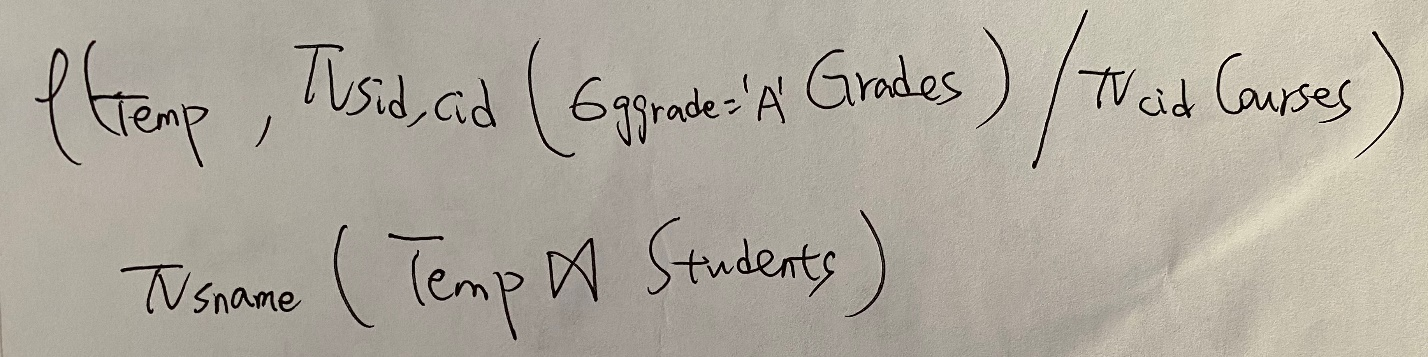 ρ(Temp, πsid,cid(σggrade='A' Grades) / πcid Courses)
πsname(Temp ⋈ Students)